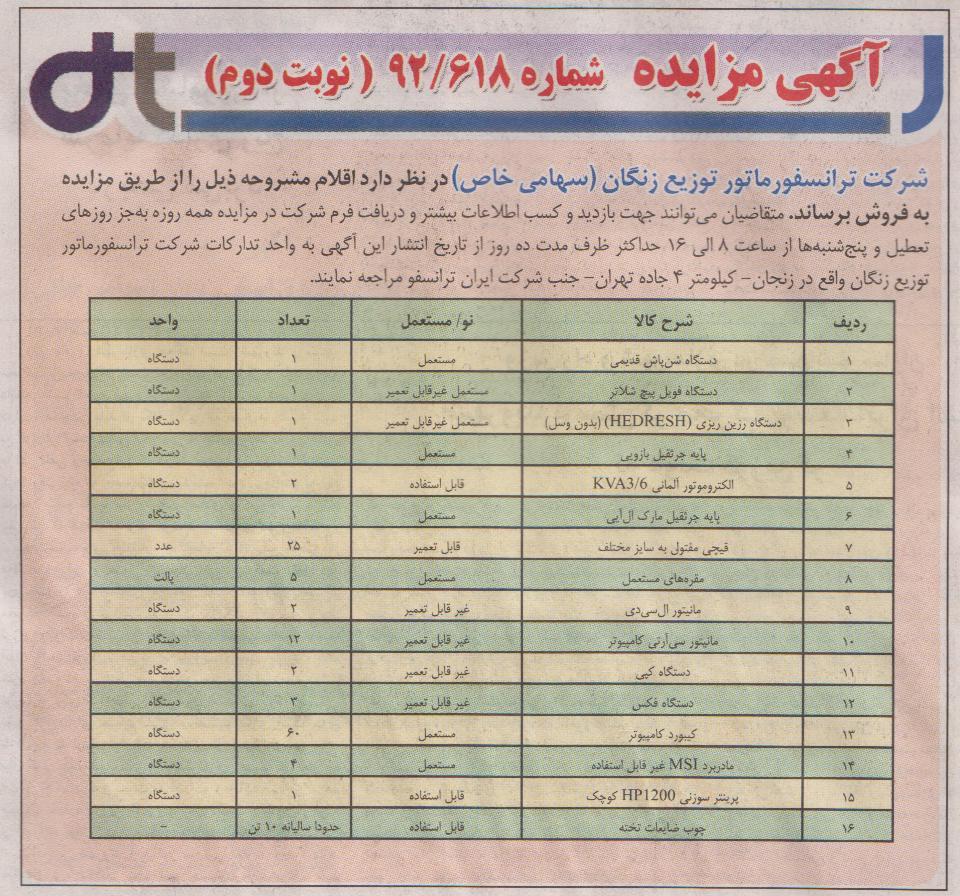 آگهی مزایده شماره ۹۲/۶۱۸ (نوبت دوم)
شرکت ترانسفورماتور توزیع زنگان (سهامی خاص) در نظر دارد اقلام مشروحه ذیل را از طریق مزایده
به فروش برساند. متقاضیان می‌توانند جهت بازدید و کسب اطلاعات بیشتر و دریافت فرم شرکت در مزایده همه روزه به‌جز روزهای
تعطیل و پنج‌شنبه‌ها از ساعت ۸ الی ۱۶ حداکثر ظرف مدت ده روز از تاریخ انتشار این آگهی به واحد تدارکات شرکت ترانسفورماتور
توزیع زنگان واقع در زنجان- کیلومتر ۴ جاده تهران- جنب شرکت ایران ترانسفو مراجعه نمایند.
ردیف شرح کالا نو/ مستعمل تعداد واحد
۱ دستگاه شن‌پاش قدیمی مستعمل ۱ دستگاه
۲ دستگاه فویل پیچ شلاتر مستعمل غیرقابل تعمیر ۱ دستگاه
۳ دستگاه رزین ریزی (HEDRESH) (بدون وسل) مستعمل غیرقابل تعمیر ۱ دستگاه
۴ پایه جرثقیل بازویی مستعمل ۱ دستگاه
۵ الکتروموتور آلمانی KVA3/6 قابل استفاده ۲ دستگاه
۶ پایه جرثقیل مارک ال‌آیی مستعمل ۱ دستگاه
۷ قیچی مفتول به سایز مختلف قابل تعمیر ۲۵ عدد
۸ مقره‌های مستعمل مستعمل ۵ پالت
۹ مانیتور ال‌سی‌دی غیر قابل تعمیر ۲ دستگاه
۱۰ مانیتور سی‌آرتی کامپیوتر غیر قابل تعمیر ۱۲ دستگاه
۱۱ دستگاه کپی غیر قابل تعمیر ۲ دستگاه
۱۲ دستگاه فکس غیر قابل تعمیر ۳ دستگاه
۱۳ کیبورد کامپیوتر مستعمل ۶۰ دستگاه
۱۴ مادربرد MSI غیر قابل استفاده مستعمل ۴ دستگاه
۱۵ پرینتر سوزنی HP1200 کوچک قابل استفاده ۱ دستگاه
۱۶ چوب ضایعات تخته قابل استفاده حدودا سالیانه ۱۰ تن -